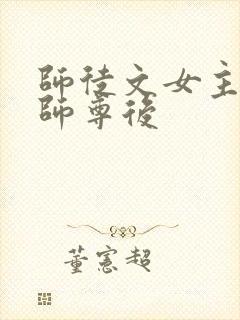 師徒文女主
師尊後
董憲超